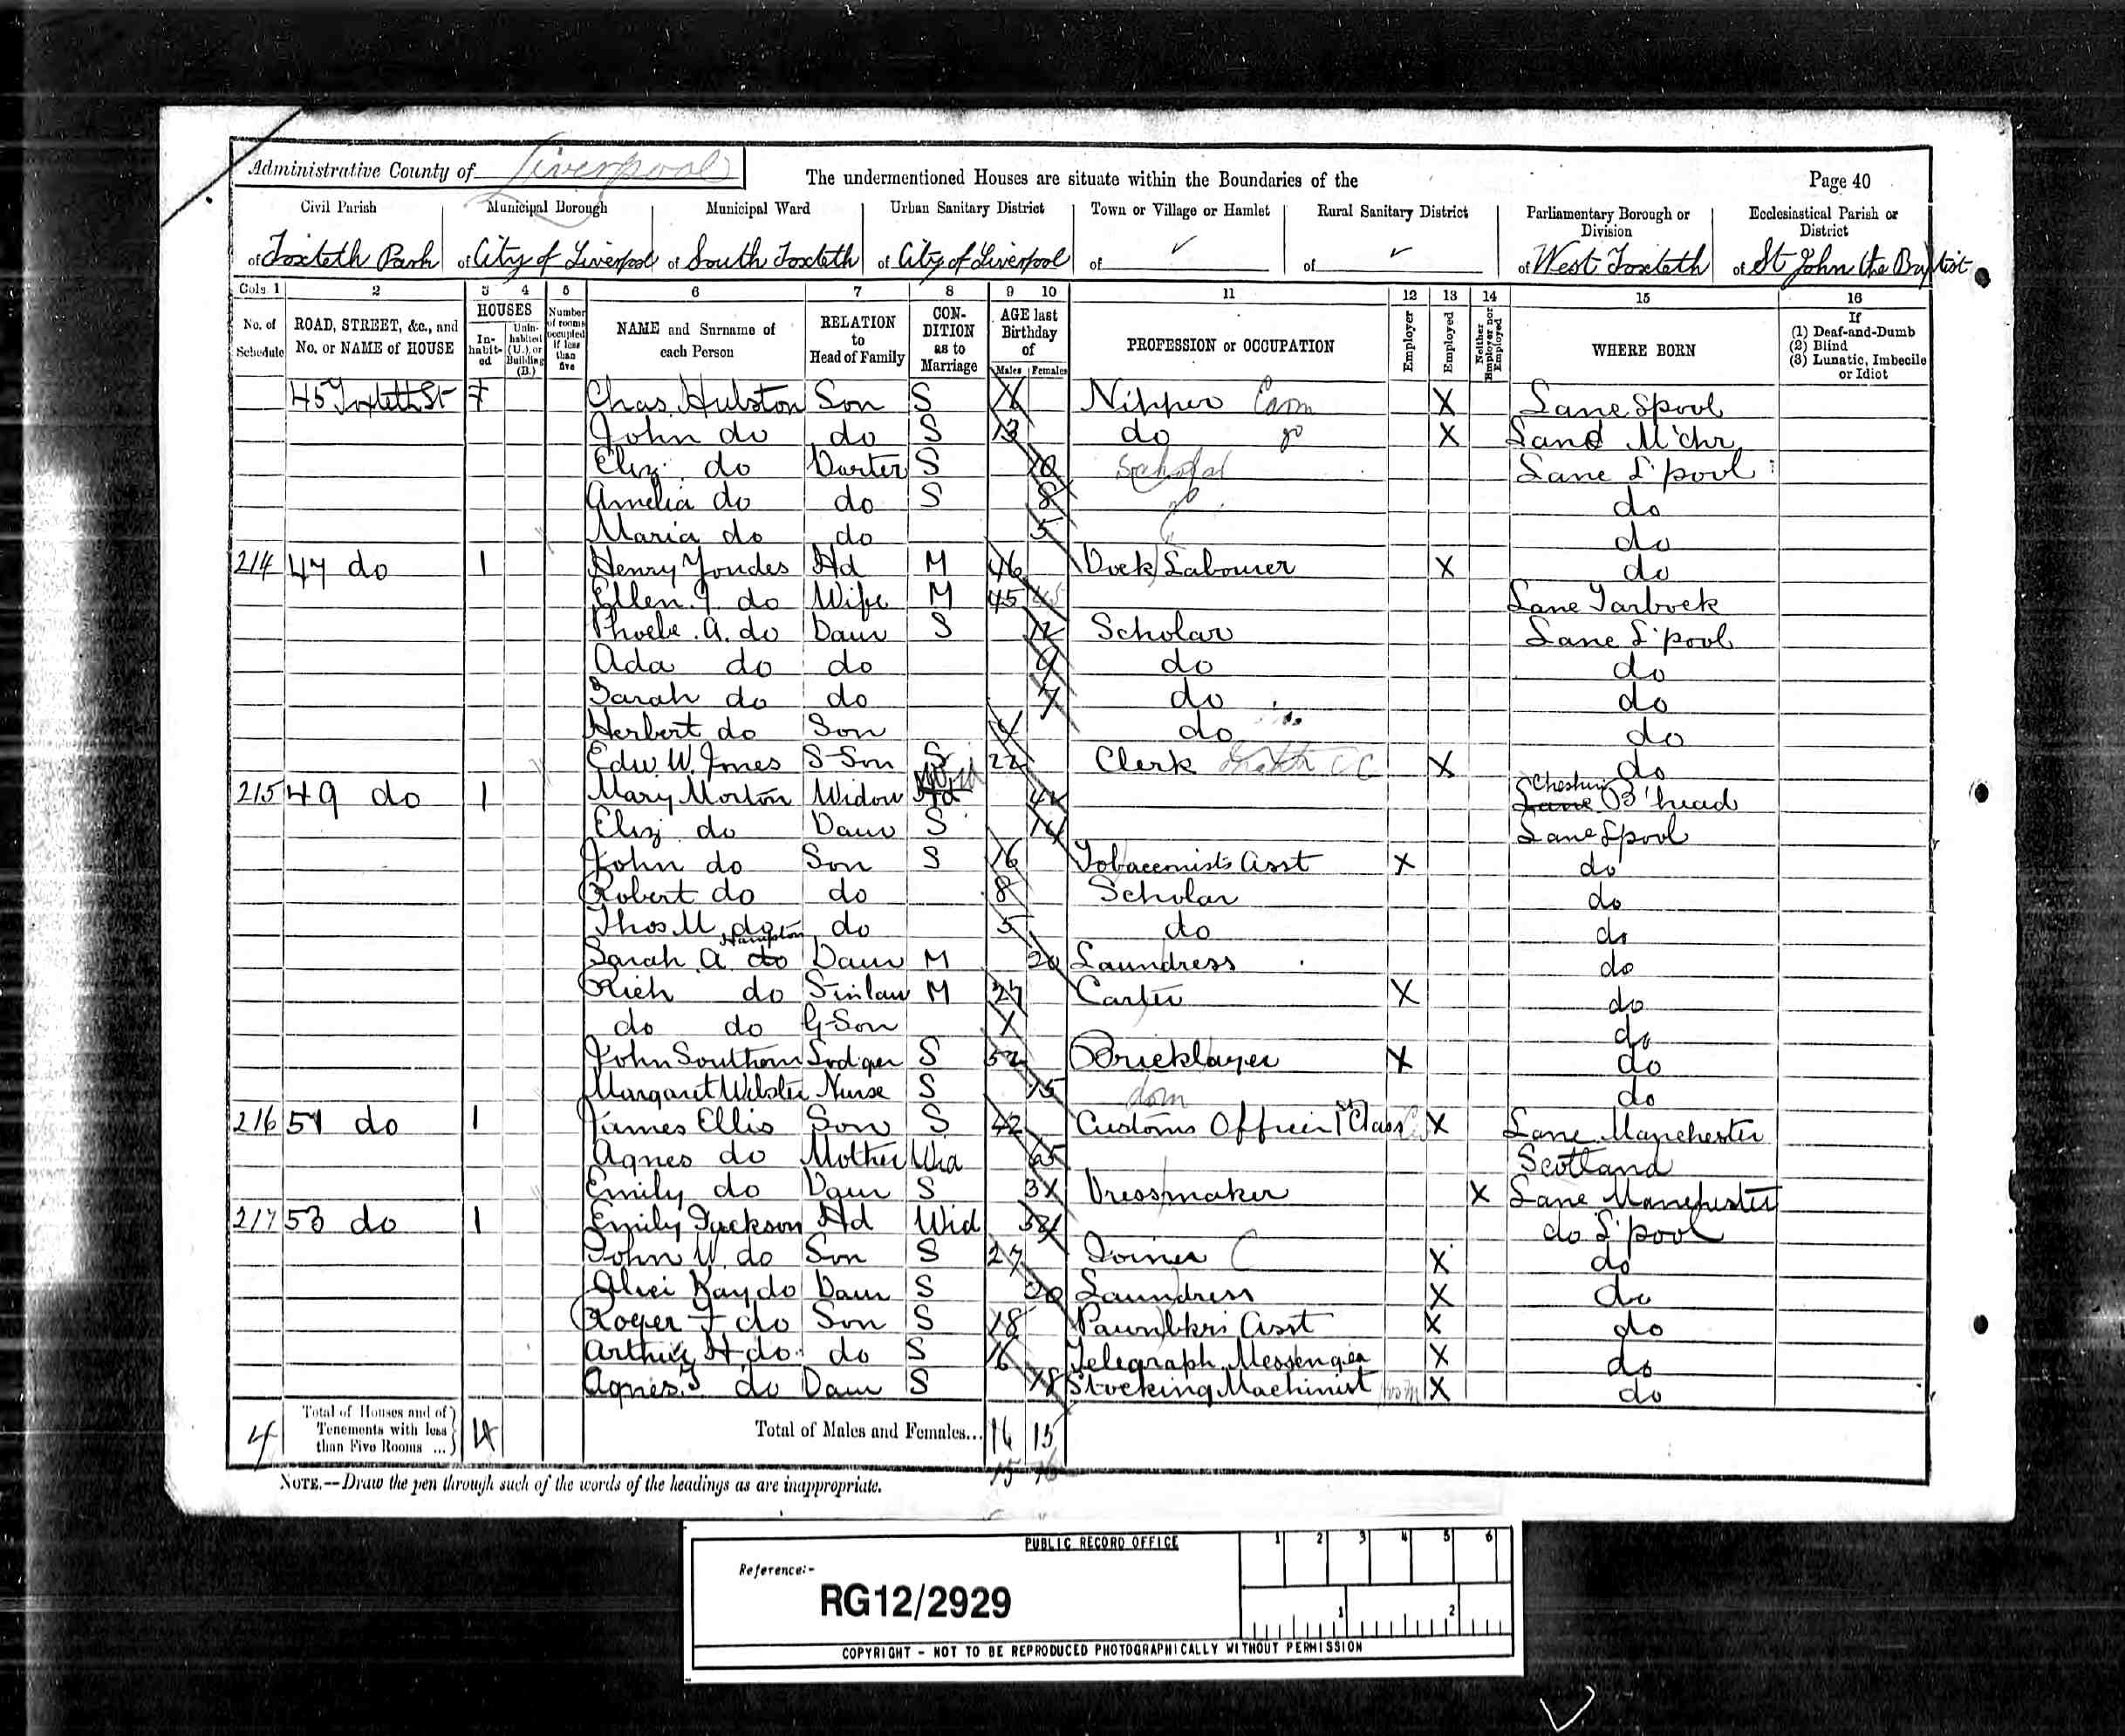 Administrative County of Liverpool
The undermentioned Houses are situate within the Boundaries of the
Page 40
Civil Parish Municipal Borough Municipal Ward Urban Sanitary District Town or Village or Hamlet Rural Sanitary District Parliamentary Borough or Division Ecclesiastical Parish or District
of Toxteth Park of City of Liverpool of South Toxteth of City of Liverpool of of of West Toxteth of St John the Baptist
Cols. 1 2 3 4 5 6 7 8 9 10 11 12 13 14 15 16
No. of Schedule ROAD, STREET, &c., and No. or NAME of HOUSE HOUSES In-habit-ed Unin-habited (U.), or Building (B.) Number of rooms occupied if less than five NAME and Surname of each Person RELATION to Head of Family CON-DITION as to Marriage AGE last Birthday of Males Females PROFESSION or OCCUPATION Employer Employed Neither Employer nor Employed WHERE BORN If (1) Deaf-and-Dumb (2) Blind (3) Lunatic, Imbecile or Idiot
45 Toxteth St Chas. Hulston Son S Nipper X Lanc Lpool
John do do S 13 do do X Lanc M'chr
Eliz. do Darter S 10 Scholar Lanc L'pool
Amelia do do S 8 do do
Maria do do 5 do
214 47 do 1 Henry Youdes Hd M 46 Dock Labourer X do
Ellen J do Wife M 45 45 Lanc Tarbock
Phoebe A. do Daur S 12 Scholar Lanc L'pool
Ada do do 9 do do
Sarah do do 7 do do
Herbert do Son 4 do do
Edw. W. Jones S-Son S 22 Clerk X do
215 49 do 1 Mary Morton Widow Hd 44 Cheshire Lanc B'head
Eliz do Daur S 14 Lanc Lpool
John do Son S 16 Tobacconists Asst X do
Robert do do 8 Scholar do
Thos M do do 5 do do
Sarah A do Hampton Daur M 20 Laundress do
Rich do Sinlaw M 27 Carter X do
do do G-Son do
John Southern Lodger S 52 Bricklayer X do
Margaret Webster Nurse S 15 dom do
216 51 do 1 James Ellis Son S 42 Customs Officer 1st Class X Lanc Manchester
Agnes do Mother Wid 65 Scotland
Emily do Daur S Dressmaker X Lanc Manchester
217 53 do 1 Emily Jackson Hd Wid do L'pool
John W. do Son S 27 Joiner X do
Alice Kay do Daur S 20 Laundress X do
Roger F do Son S 18 Pawnbkrs Asst X do
Arthur H do do S 16 Telegraph Messenger X do
Agnes J do Daur S Stocking Machinist X do
4 Total of Houses and of Tenements with less than Five Rooms ... 4 Total of Males and Females... 16 15
15 16
NOTE.—Draw the pen through such of the words of the headings as are inappropriate.
PUBLIC RECORD OFFICE
1 2 3 4 5 6
Reference:-
RG12/2929
1 2
COPYRIGHT - NOT TO BE REPRODUCED PHOTOGRAPHICALLY WITHOUT PERMISSION